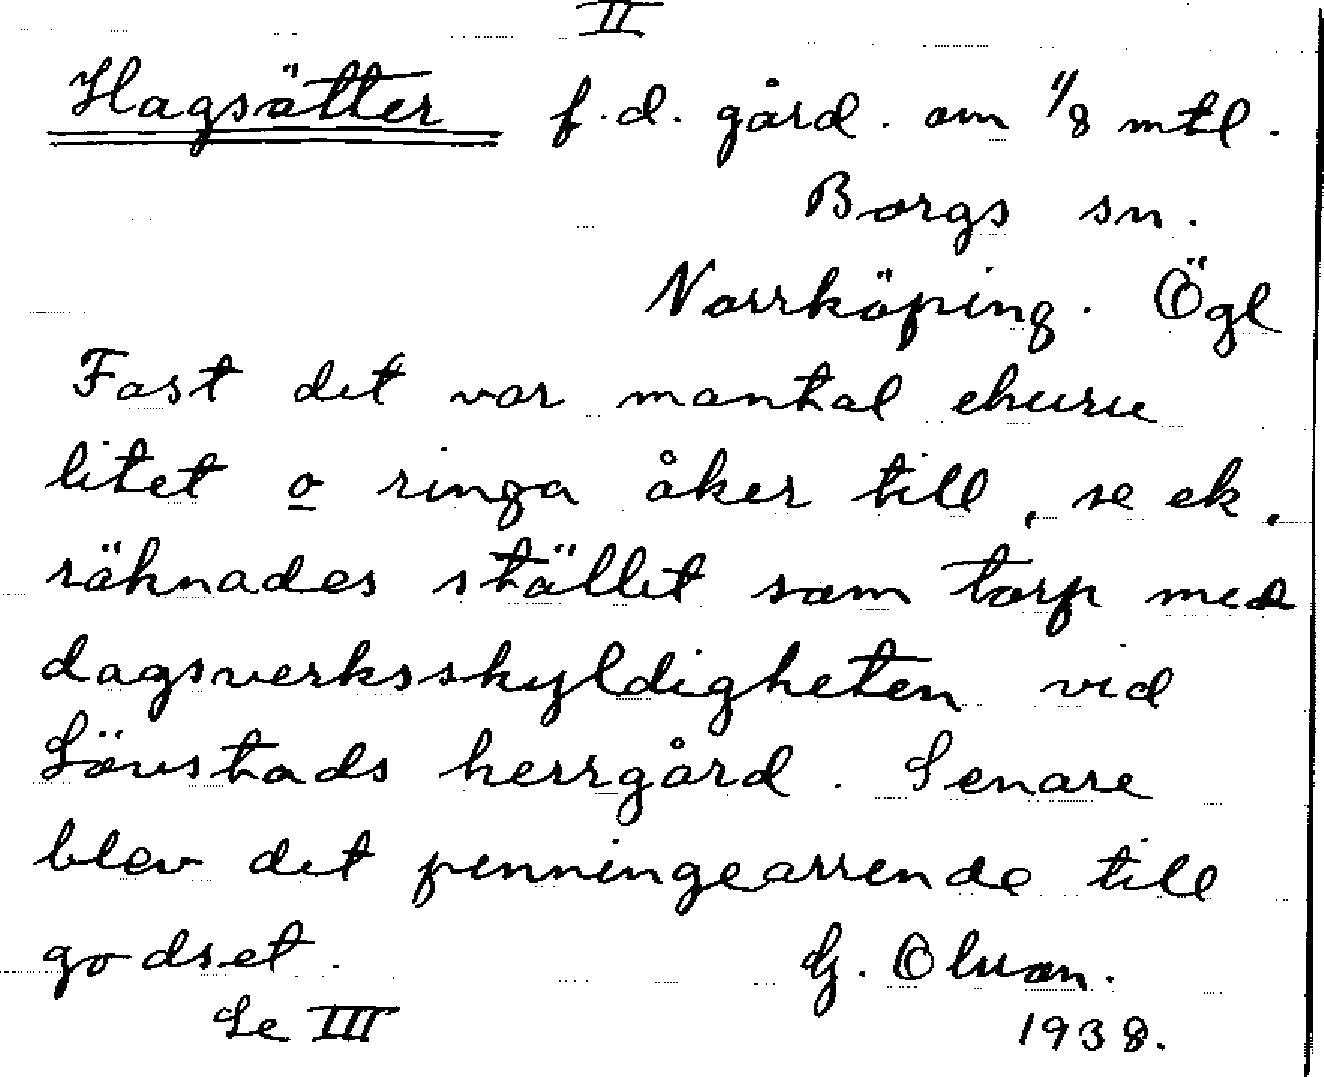 II
Hagsätter f.d. gård. om 1/8 mtl.
Borgs sn.
Norrköping. Ögl
Fast det var mantal ehuru
litet o ringa åker till, se ek.
räknades stället som torp med
dagsverksskyldigheten vid
Lövstads herrgård. Senare
blev det penningearrende till
godset.
G. Olson.
Se III
1938.